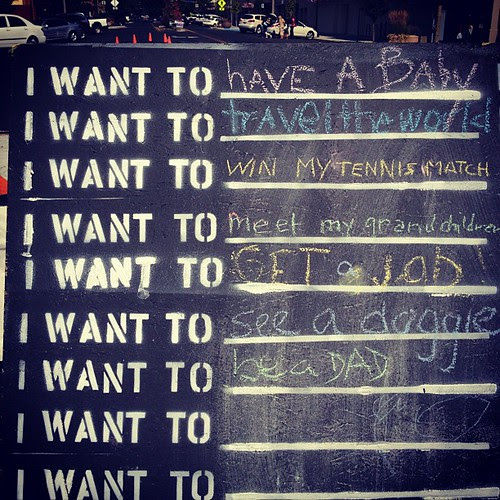 I WANT TO HAVE A BABY
I WANT TO travel the world
I WANT TO WIN MY TENNIS MATCH
I WANT TO meet my grandchildren
I WANT TO GET a Job
I WANT TO see a doggie
I WANT TO be a DAD
I WANT TO
I WANT TO